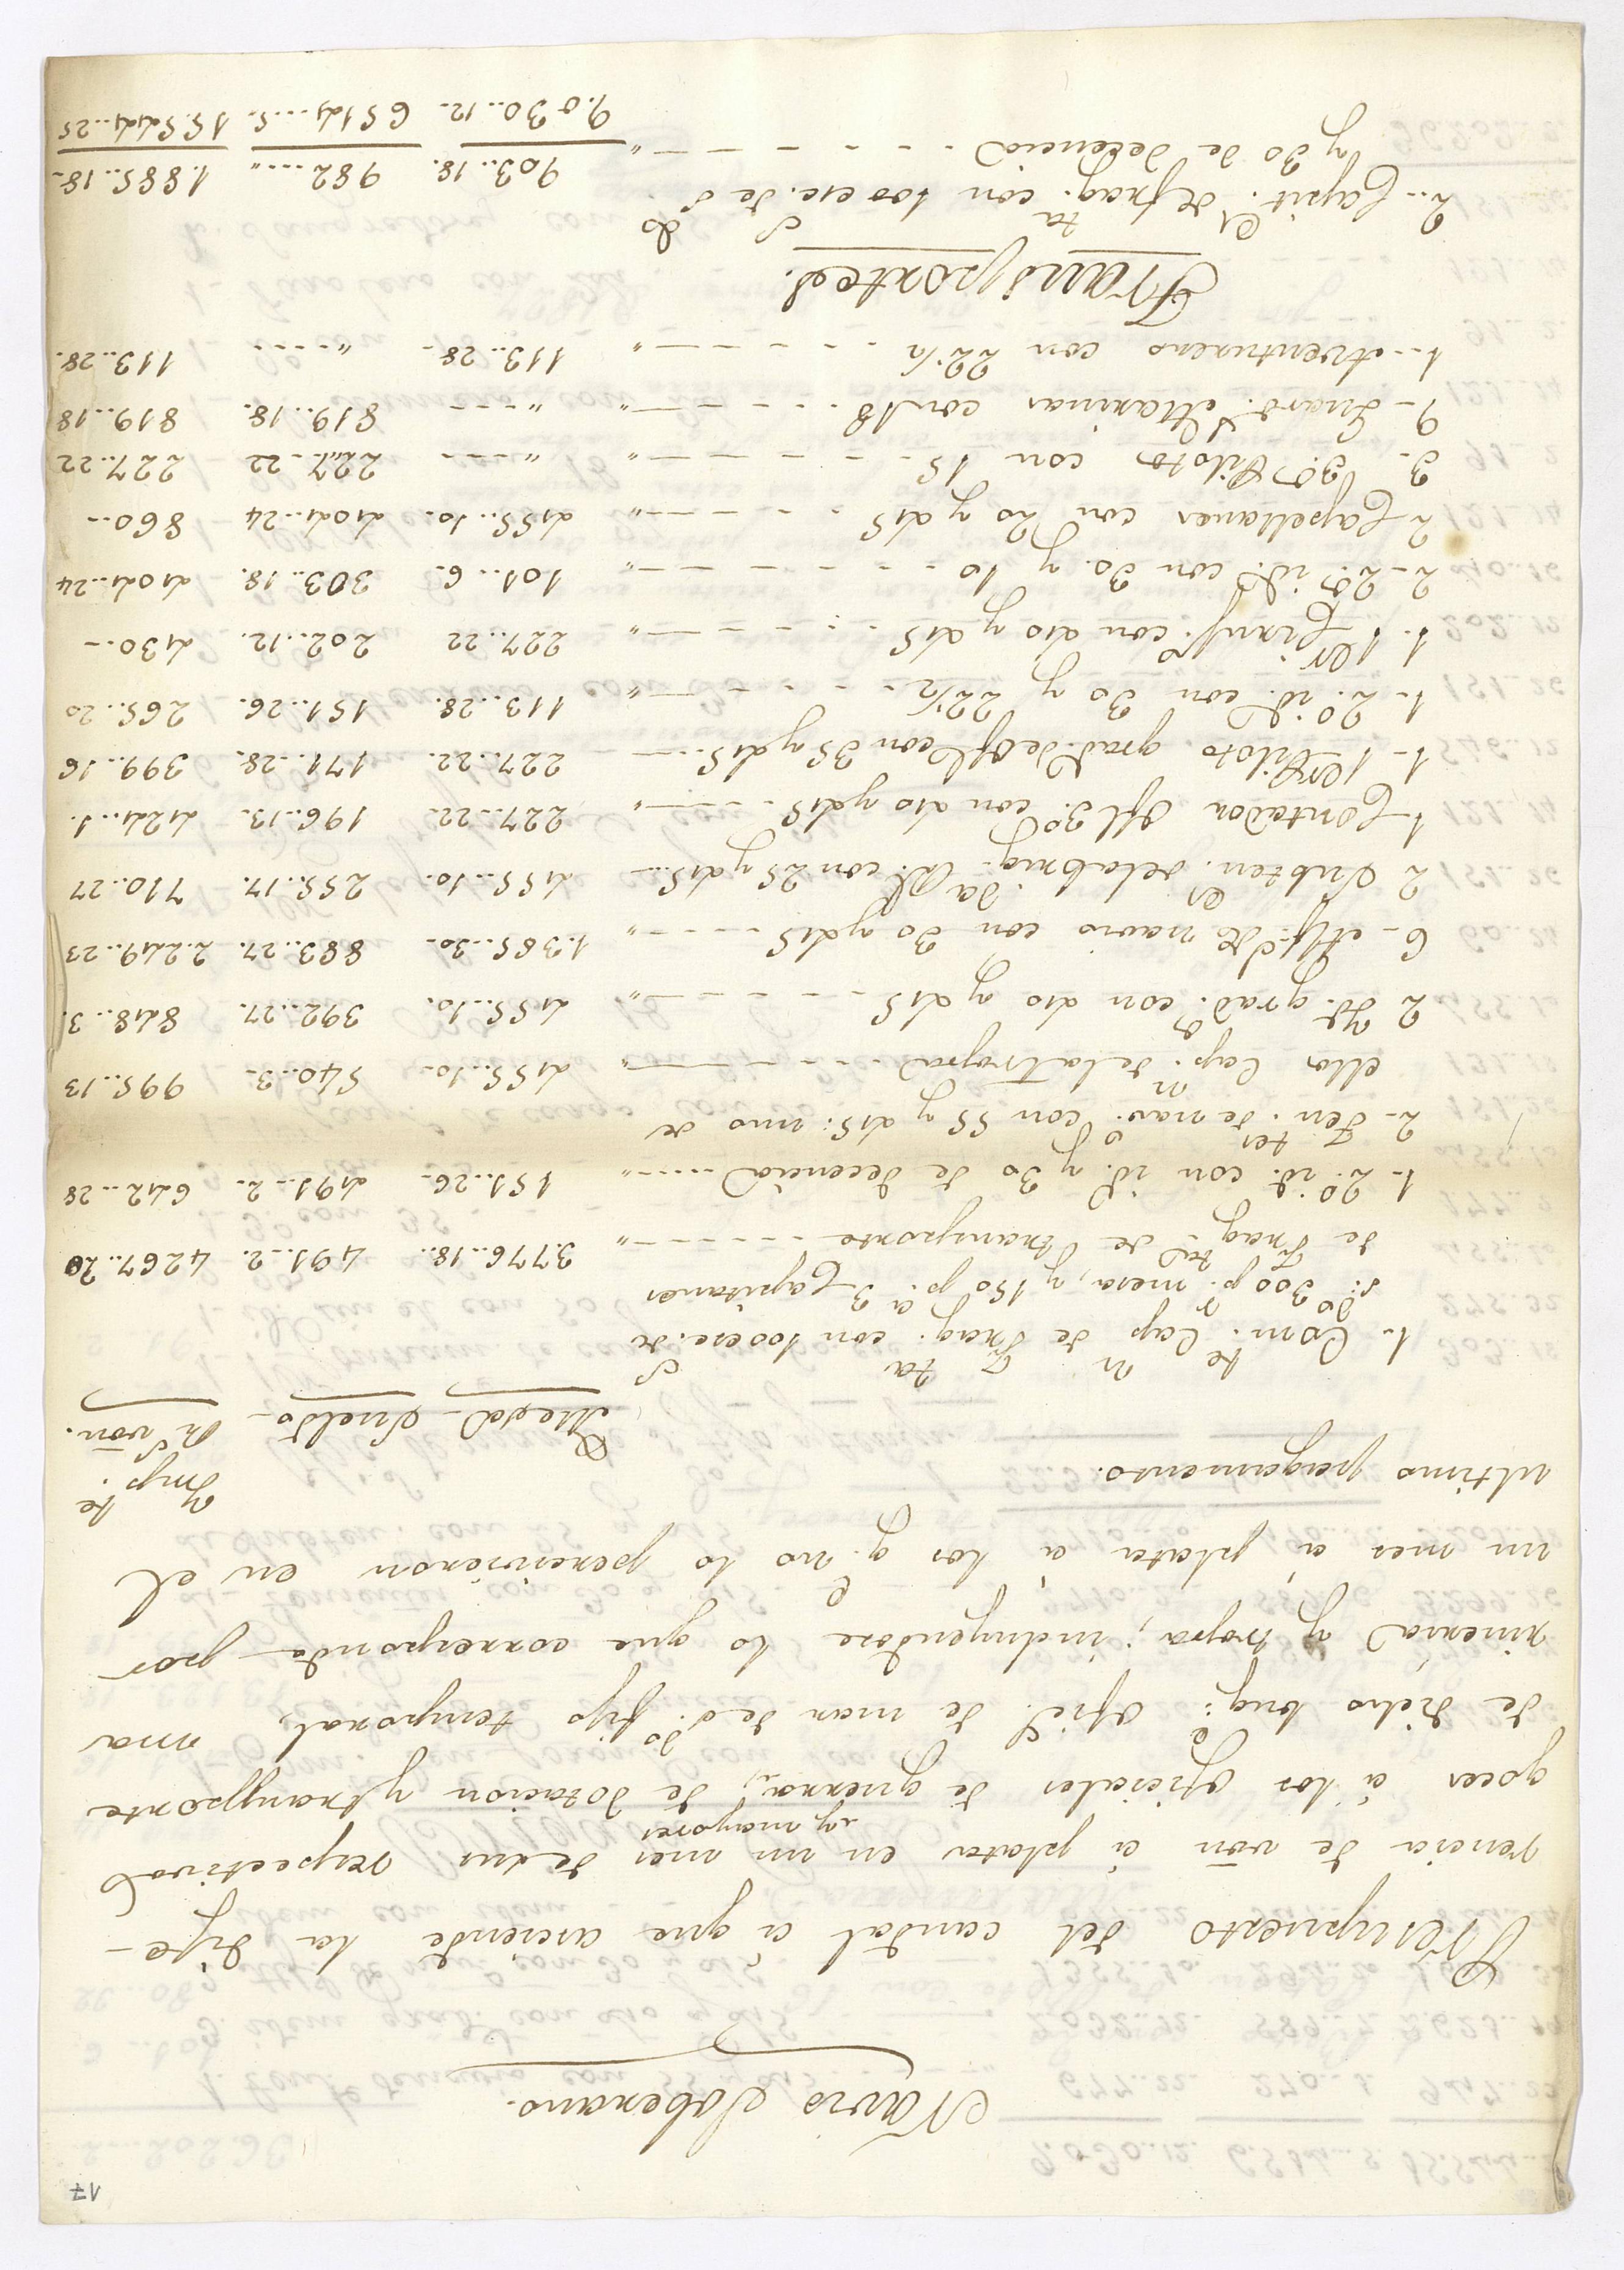 17
Navio Soberano.
Presupuesto del caudal á que aciende la dife-
rencia de von á plata en un mes de sus respectivos
y mayores
goces á los oficiales de guerra, de dotacion y transporte
de dicho buq.e ofic.l de mar de s.do fijo temporal, ma
rineria y tropa; incluyendose lo que corresponde por
un mes á plata á los q.e no lo percivieron en el
ultimo pagamento.
Mesas - Sueldo - Imp.te R.s von.
1. Com.te Cap.n de Frag.ta con 100 esc.s de
s.do 300 p.r mesa, y 150 p.r a 3 Capitanes
de Frag.tas de transporte ----- " 3.776..18. 491..2. 4267..20
1. 2.º id. con id. y 30 de decencia ---- " 151..26. 491..2. 642..28
2. Ten.tes de nav.o con 55 y 45: uno de
ellos Cap.n de la tropa ----- " 455..10. 540..3. 995..13
2 Yd. grad.s con 40 y 45 ----- " 455..10. 392..27. 848..3.
6 - Alf.s de navio con 30 y 45 ---- " 1.365..30. 883..27. 2.249..23
2 Subten.es de la brig.da Rl. con 25 y 45 -- 455..10. 255..17. 710..27
1. Contador Ofl. 3.º con 40 y 45 ---- " 227..22. 196..13. 424..1.
1. 1.er Piloto grad.o de Ofl. con 35 y 45 --- 227..22. 171..28. 399..16
1. 2.º id. con 30 y 22 1/2 ----- " 113..28. 151..26. 265..20
1. 1.er Ciruj.o con 40 y 45 ----- " 227..22 202..12. 430..-
2 - 2.os id. con 30 y 10 ----- " 101..6. 303..18. 404..24
2 Capellanes con 20 y 45 ----- " 455..10. 404..24 860..-
3. 3.os Pilotos con 15 ----- " " --- 227..22 227..22
9 - Guard.s Marinas con 18 ----- " " --- 819..18. 819..18
1. Aventurero con 22 1/2 ----- " 113..28 " --- 113..28.
Transportes.
2. Capit.es de frag.ta con 100 esc.s de s.do
y 30 de decencia ----- " 903..18. 982...." 1.885..18.
9.030..12. 6514....5. 15.544..25